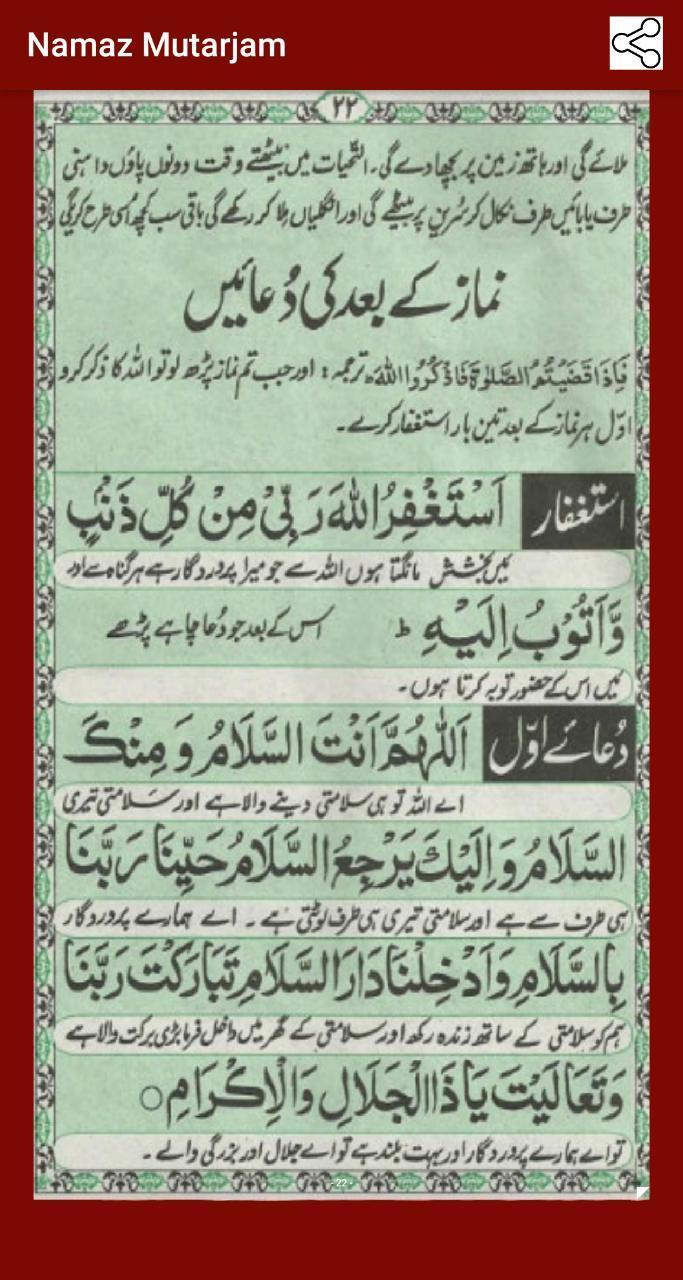 Namaz Mutarjam
۲۲
ملائے گی اور ہاتھ زمین پر بچھا دے گی۔ التحیات میں بیٹھتے وقت دونوں پاؤں داہنی
طرف یا بائیں طرف نکال کر سُرین پر بیٹھے گی اور انگلیاں ملا کر رکھے گی باقی سب کچھ اُسی طرح کریگی
نماز کے بعد کی دُعائیں
فَاِذَا قَضَيْتُمُ الصَّلٰوةَ فَاذْكُرُوا اللهَ ترجمہ : اور جب تم نماز پڑھ لو تو اللہ کا ذکر کرو
اوّل ہر نماز کے بعد تین بار استغفار کرے۔
استغفار اَسْتَغْفِرُ اللهَ رَبِّيْ مِنْ كُلِّ ذَنْۢبٍ
میں بخشش مانگتا ہوں اللہ سے جو میرا پروردگار ہے ہر گناہ سے اور
وَّاَتُوْبُ اِلَيْهِ ط اس کے بعد جو دُعا چاہے پڑھے
میں اس کے حضور توبہ کرتا ہوں۔
دُعائے اوّل اَللّٰهُمَّ اَنْتَ السَّلَامُ وَ مِنْكَ
اے اللہ تو ہی سلامتی دینے والا ہے اور سلامتی تیری
السَّلَامُ وَاِلَيْكَ يَرْجِعُ السَّلَامُ حَيِّنَا رَبَّنَا
ہی طرف سے ہے اور سلامتی تیری ہی طرف لوٹتی ہے ۔ اے ہمارے پروردگار
بِالسَّلَامِ وَاَدْخِلْنَا دَارَ السَّلَامِ تَبَارَكْتَ رَبَّنَا
ہم کو سلامتی کے ساتھ زندہ رکھ اور سلامتی کے گھر میں داخل فرما بڑی برکت والا ہے
وَتَعَالَيْتَ يَا ذَا الْجَلَالِ وَالْاِكْرَامِ ○
تو اے ہمارے پروردگار اور بہت بلند ہے تو اے جلال اور بزرگی والے ۔
- 22 -